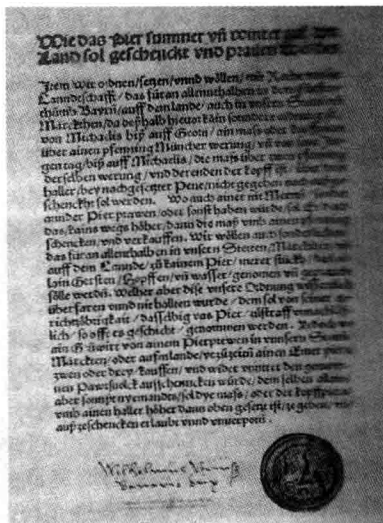 Wie das Pier summer vñ winter auf dem
Land sol geschenckt vnd prauen werden
Item Wir ordnen / setzen / vnnd wöllen / mit Rathe vnnser
Lanndtschafft / das füran allennthalben in dem Fürsten
thůmb Bayrn / auff dem lande / auch in vnsern Stetten vñ
Märckthen / da deßhalb hieuor kain sonndere ordnung ist /
von Michaelis biß auff Georij / ain mass oder kopff piers
über ainen pfenning Müncher werung / vñ von sant Jör-
gen tag / biß auff Michaelis / die mass über zwen pfenning
derselben werung / vnd derenden der kopff ist / über drey
haller / bey nachgesetzter Pene / nicht gegeben noch auß
geschenckht sol werden. Wo auch ainer nit Mertzn / sonder
annder Pier prawen / oder sonst haben würde / sol Er doch
das / kains wegs höher / dann die maß vmb ainen pfenning
schencken / vnd verkauffen. Wir wöllen auch sonderlichen /
das füran allenthalben in vnsern Stetten / Märckthen / vñ
auff dem Lannde / zů kainem Pier / merer stückh / dann al-
lain Gersten / Hopffen / vñ wasser / genomen vñ gepraucht
sölle werdn. Welher aber dise vnsere Ordnung wissentlich
überfaren vnnd nit hallten wurde / dem sol von seiner ge-
richtzöbrigkait / dasselbig vas Pier / zůstraff vnnachläß-
lich / so offt es geschicht / genommen werden. Yedoch wo
ain Gůwirt von ainem Pierprewen in vnnsern Stetten /
Märckten / oder aufm lande / yezůzeitn ainen Emer piers /
zwen oder drey / kauffen / vnd wider vnntter den gemayn-
nen Pawrsuolck ausschenncken würde / dem selben allain /
aber sonnst nyemandts / sol dye mass / oder der kopff piers /
vmb ainen haller höher dann oben gesetzt ist / ze geben / vñ
auß zeschencken erlaubt vnnd vnuerpotn.